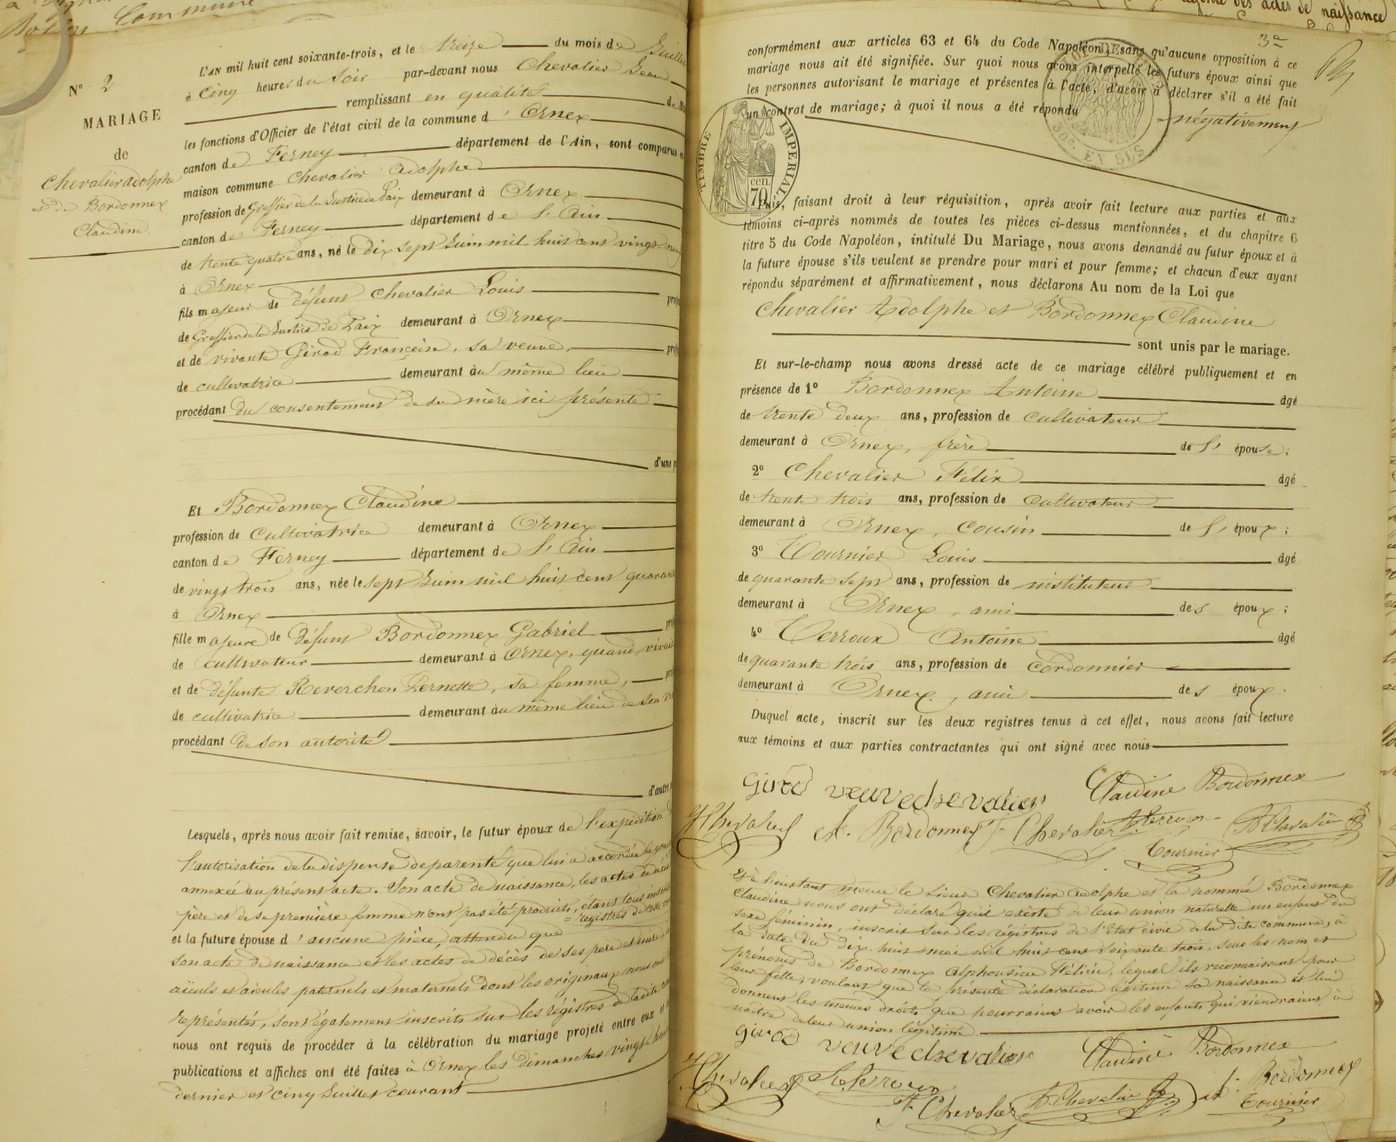 Commune
N° 2
MARIAGE
de
Chevalier Adolphe
et de Bordonnex
Claudine
L'AN mil huit cent soixante-trois, et le treize du mois de Juillet
à cinq heures du soir par-devant nous Chevalier Jean
remplissant en qualité de
les fonctions d'Officier de l'état civil de la commune d'Ornex
canton de Ferney département de l'Ain, sont comparus
maison commune Chevalier Adolphe
profession de Greffier de la Justice de Paix demeurant à Ornex
canton de Ferney département de l'Ain
de trente quatre ans, né le dix sept Juin mil huit cent vingt neuf
à Ornex
fils majeur de défunt Chevalier Louis
de Greffier de la Justice de Paix demeurant à Ornex
et de vivante Girod Francoise, sa veuve,
de cultivatrice demeurant au même lieu
procédant du consentement de sa mère ici présente
d'une p
Et Bordonnex Claudine
profession de cultivatrice demeurant à Ornex
canton de Ferney département de l'Ain
de vingt trois ans, née le sept Juin mil huit cent quarante
à Ornex
fille majeure de défunt Bordonnex Gabriel
de cultivateur demeurant à Ornex, quand vivait
et de défunte Reverchon Pernette, sa femme,
de cultivatrice demeurant au même lieu de son
procédant de son autorité
d'autre
Lesquels, après nous avoir fait remise, savoir, le futur époux de l'expédition
l'autorisation de la dispense de parenté que lui a accordée
annexée au présent acte. Son acte de naissance, les actes de décès
père et de sa première femme n'ont pas été produits, étant tous
registres de cette
et la future épouse d'aucune pièce, attendu que
son acte de naissance et les actes de décès de ses père et mère
aïeuls et aïeules paternels et maternels dont les originaux nous ont
représentés, sont également inscrits sur les régistres de ladite
nous ont requis de procéder à la célébration du mariage projeté entre eux et
publications et affiches ont été faites à Ornex les dimanches vingt huit
dernier et cinq Juillet courant
des actes de naissance
3e
conformément aux articles 63 et 64 du Code Napoléon, sans qu'aucune opposition à ce
mariage nous ait été signifiée. Sur quoi nous avons interpellé les futurs époux ainsi que
les personnes autorisant le mariage et présentes à l'acte, d'avoir à déclarer s'il a été fait
un contrat de mariage; à quoi il nous a été répondu
négativement
TIMBRE IMPÉRIAL
70 cen.
50c. EN SUS
Puis, faisant droit à leur réquisition, après avoir fait lecture aux parties et aux
témoins ci-après nommés de toutes les pièces ci-dessus mentionnées, et du chapitre 6
titre 5 du Code Napoléon, intitulé Du Mariage, nous avons demandé au futur époux et à
la future épouse s'ils veulent se prendre pour mari et pour femme; et chacun d'eux ayant
répondu séparément et affirmativement, nous déclarons Au nom de la Loi que
Chevalier Adolphe et Bordonnex Claudine
sont unis par le mariage.
Et sur-le-champ nous avons dressé acte de ce mariage célébré publiquement et en
présence de 1° Bordonnex Antoine âgé
de trente deux ans, profession de cultivateur
demeurant à Ornex, frère de l'épouse;
2° Chevalier Félix âgé
de trente trois ans, profession de cultivateur
demeurant à Ornex, cousin de l'époux;
3° Tournier Louis âgé
de quarante sept ans, profession de instituteur
demeurant à Ornex, ami des époux;
4° Verroux Antoine âgé
de quarante trois ans, profession de cordonnier
demeurant à Ornex, ami des époux.
Duquel acte, inscrit sur les deux registres tenus à cet effet, nous avons fait lecture
aux témoins et aux parties contractantes qui ont signé avec nous
Girod veuve chevalier Claudine Bordonnex
Chevalier A. Bordonnex F. Chevalier A. Verroux A. Chevalier
Tournier
Et à l'instant même le sieur Chevalier Adolphe et la nommée Bordonnex
Claudine nous ont déclaré qu'il existe de leur union naturelle un enfant du
sexe féminin, inscrit sur les registres de l'Etat civil de la dite commune, à
la date du dix huit mai mil huit cent soixante trois, sous les nom et
prénoms de Bordonnex Alphonsine Félicie, lequel ils reconnaissent pour
leur fille, voulant que la présente déclaration légitime sa naissance et lui
donnent les mêmes droits que pourraient avoir les enfants qui viendraient à
naître de leur union légitime
Girod veuve chevalier Claudine Bordonnex
Chevalier A. Verroux A. Bordonnex
F. Chevalier A. Chevalier Tournier